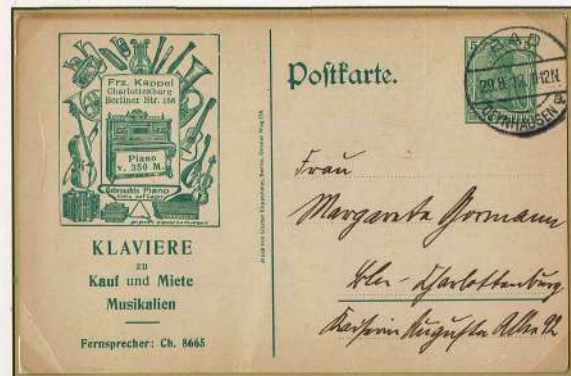 Frz. Kappel
Charlottenburg
Berliner Str.
Piano
v. 350 M.
Gebrauchte Piano
KLAVIERE
zu
Kauf und Miete
Musikalien
Fernsprecher: Ch. 8665
Postkarte.
5
BAD
OEYNHAUSEN
Frau
Margarete Gormann
Bln-Charlottenburg
Kaiserin Augusta Allee 92